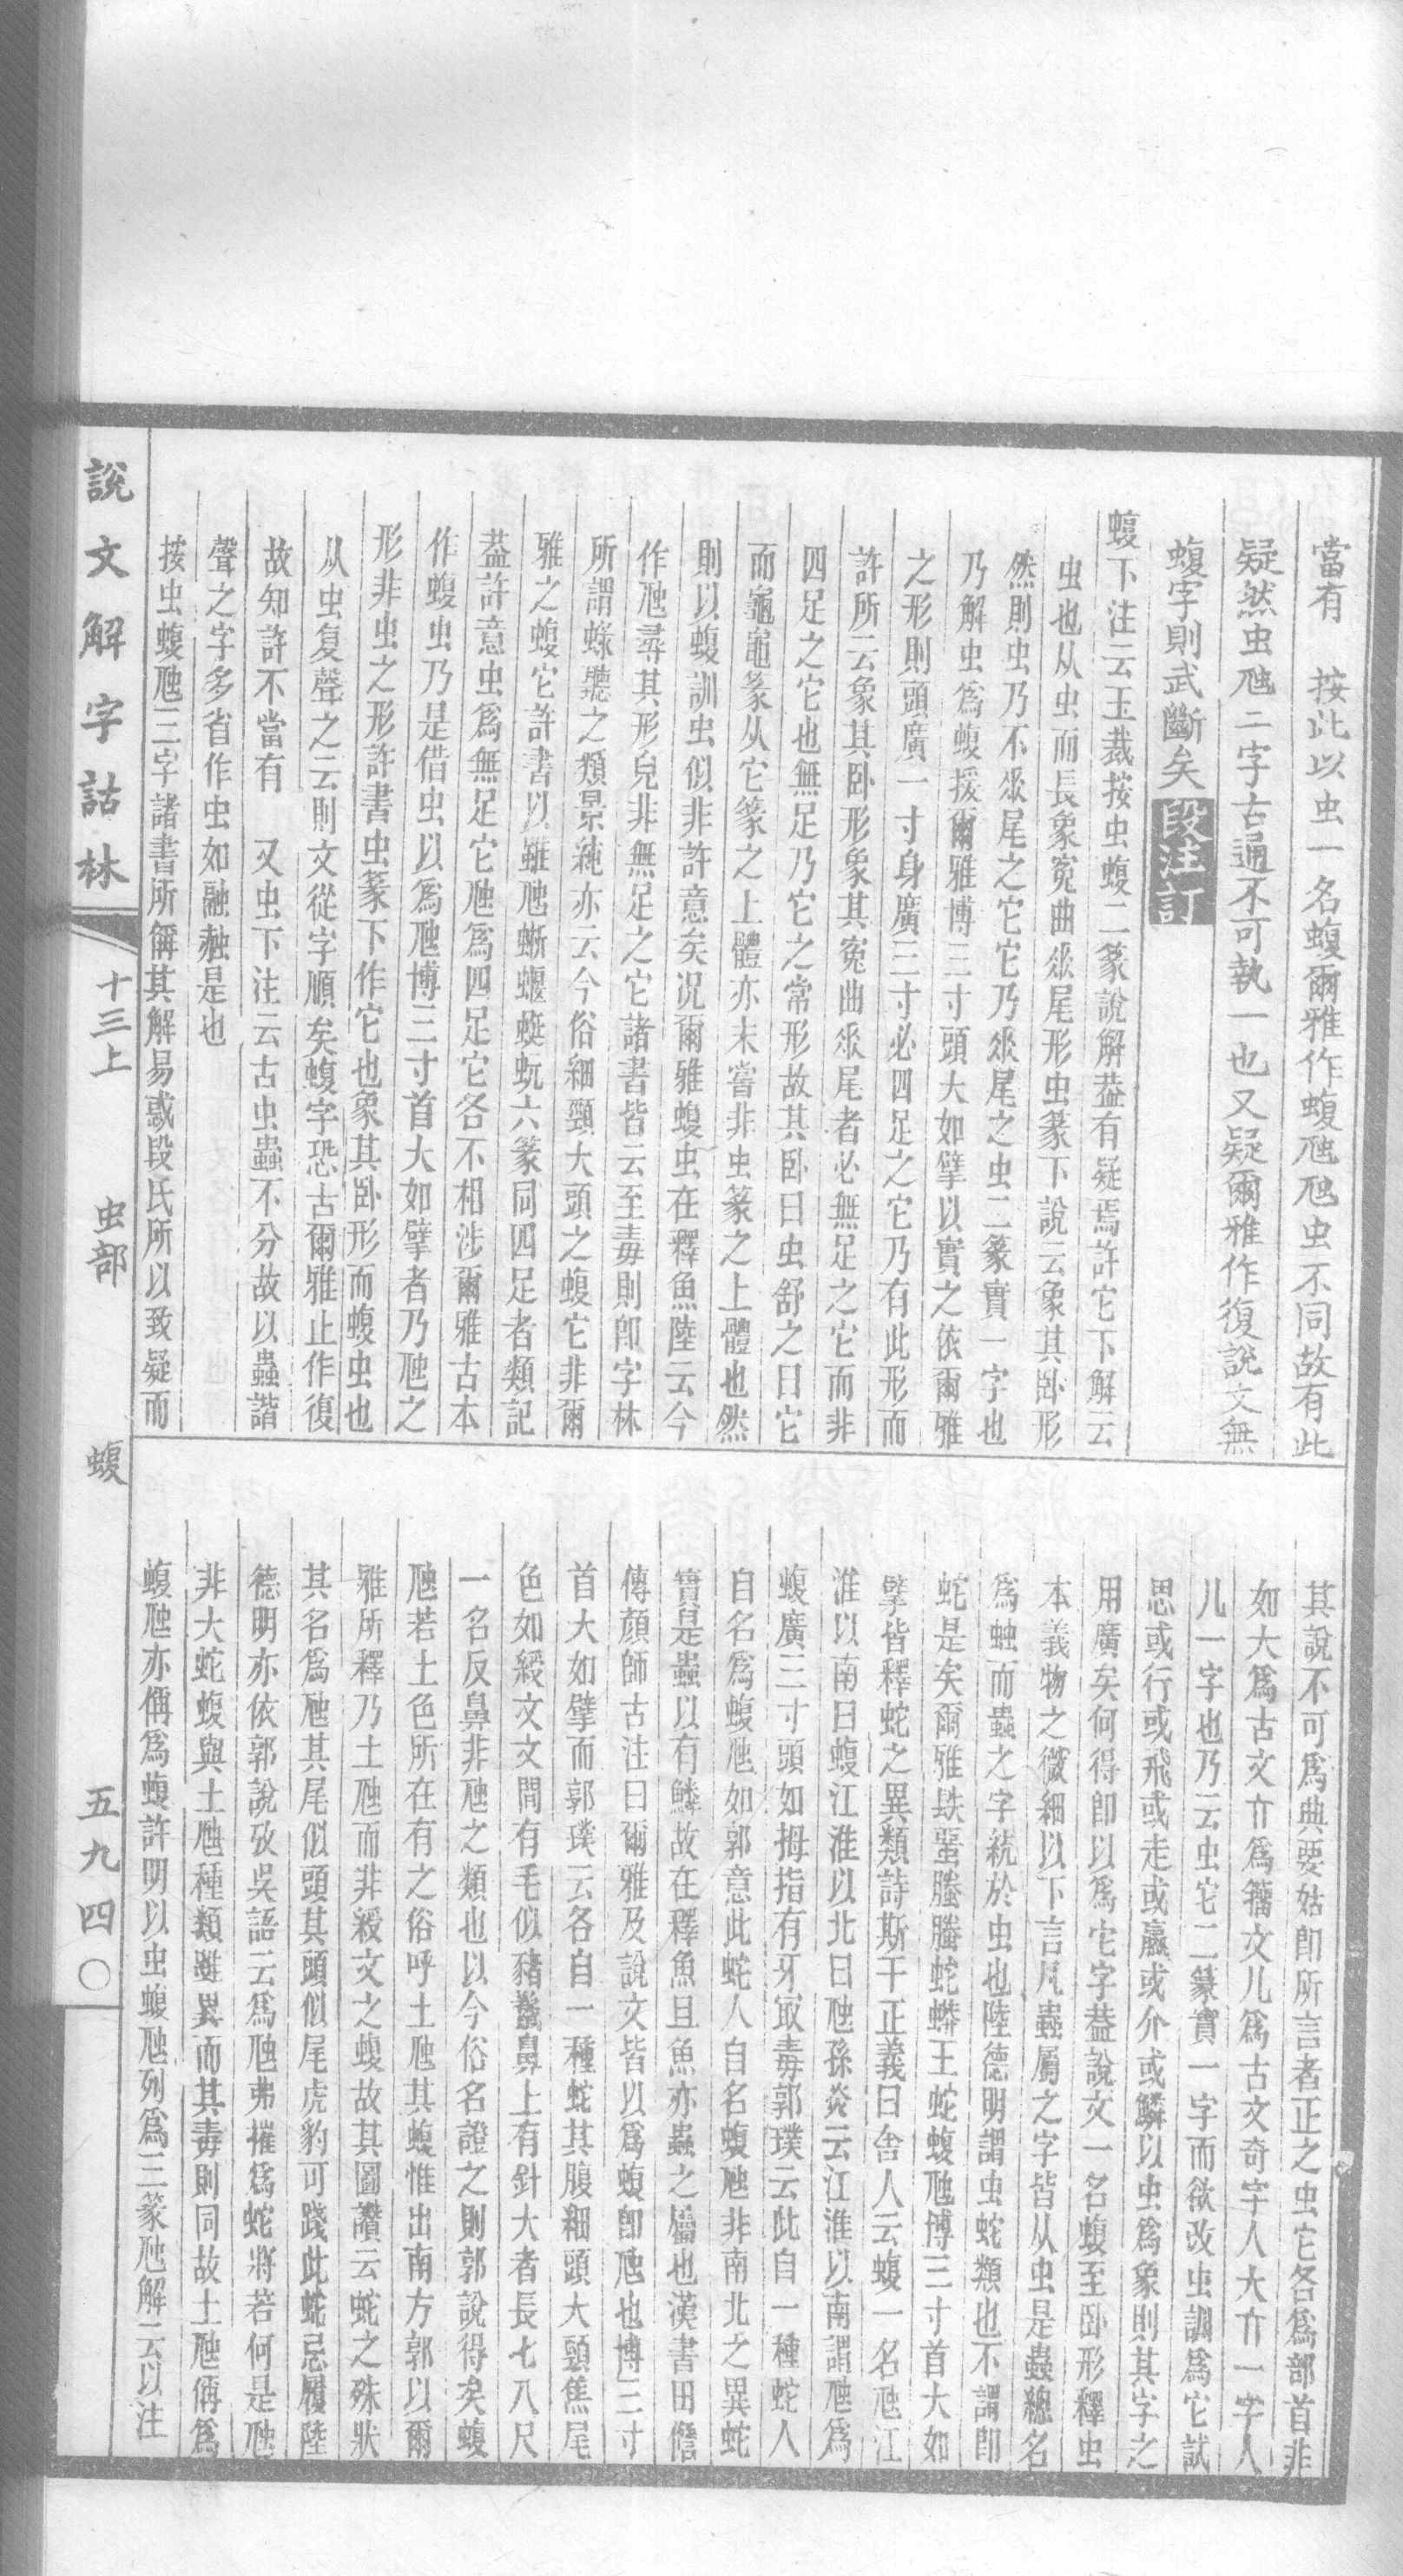 當有　按此以虫一名蝮爾雅作蝮虺虺虫不同故有此
疑然虫虺二字古通不可執一也又疑爾雅作復說文無
蝮字則武斷矣段注訂
蝮下注云玉裁按虫蝮二篆說解葢有疑焉許它下解云
虫也从虫而長象冤曲𠂹尾形虫篆下說云象其卧形
然則虫乃不𠂹尾之它它乃𠂹尾之虫二篆實一字也
乃解虫爲蝮援爾雅博三寸頭大如擘以實之依爾雅
之形則頭廣一寸身廣三寸必四足之它乃有此形而
許所云象其卧形象其冤曲𠂹尾者必無足之它而非
四足之它也無足乃它之常形故其卧曰虫舒之曰它
而龜黽篆从它篆之上體亦未嘗非虫篆之上體也然
則以蝮訓虫似非許意矣况爾雅蝮虫在釋魚陸云今
作虺尋其形皃非無足之它諸書皆云至毒則卽字林
所謂蜧聽之類景純亦云今俗細頸大頭之蝮它非爾
雅之蝮它許書以雖虺蜥蝘蜓蚖六篆同四足者類記
葢許意虫爲無足它虺爲四足它各不相涉爾雅古本
作蝮虫乃是借虫以爲虺博三寸首大如擘者乃虺之
形非虫之形許書虫篆下作它也象其卧形而蝮虫也
从虫复聲之云則文從字順矣蝮字恐古爾雅止作復
故知許不當有　又虫下注云古虫蟲不分故以蟲諧
聲之字多省作虫如融赨是也
按虫蝮虺三字諸書所偁其解易惑段氏所以致疑而
其說不可爲典要姑卽所言者正之虫它各爲部首非
如大爲古文亣爲籀文儿爲古文奇字人大亣一字人
儿一字也乃云虫它二篆實一字而欲改虫訓爲它試
思或行或飛或走或蠃或介或鱗以虫爲象則其字之
用廣矣何得卽以爲它字葢說文一名蝮至卧形釋虫
本義物之微細以下言凡蟲屬之字皆从虫是蟲總名
爲䖵而蟲之字統於虫也陸德明謂虫蛇類也不謂卽
蛇是矣爾雅镻蝁螣螣蛇蟒王蛇蝮虺博三寸首大如
擘皆釋蛇之異類詩斯干正義曰舍人云蝮一名虺江
淮以南曰蝮江淮以北曰虺孫炎云江淮以南謂虺爲
蝮廣三寸頭如拇指有牙㝡毒郭璞云此自一種蛇人
自名爲蝮虺如郭意此蛇人自名蝮虺非南北之異蛇
實是蟲以有鱗故在釋魚且魚亦蟲之屬也漢書田儋
傳顏師古注曰爾雅及說文皆以爲蝮卽虺也博三寸
首大如擘而郭璞云各自一種蛇其腹細頭大頭焦尾
色如綬文文間有毛似豬鬣鼻上有針大者長七八尺
一名反鼻非虺之類也以今俗名證之則郭說得矣蝮
虺若土色所在有之俗呼土虺其蝮惟出南方郭以爾
雅所釋乃土虺而非綬文之蝮故其圖讚云蛇之殊狀
其名爲虺其尾似頭其頭似尾虎豹可踐此蛇忌履陸
德明亦依郭說攷吳語云爲虺弗摧爲蛇將若何是虺
非大蛇蝮與土虺種類雖異而其毒則同故土虺偁爲
蝮虺亦偁爲蝮許明以虫蝮虺列爲三篆虺解云以注
說文解字詁林
十三上　虫部　蝮　五九四〇